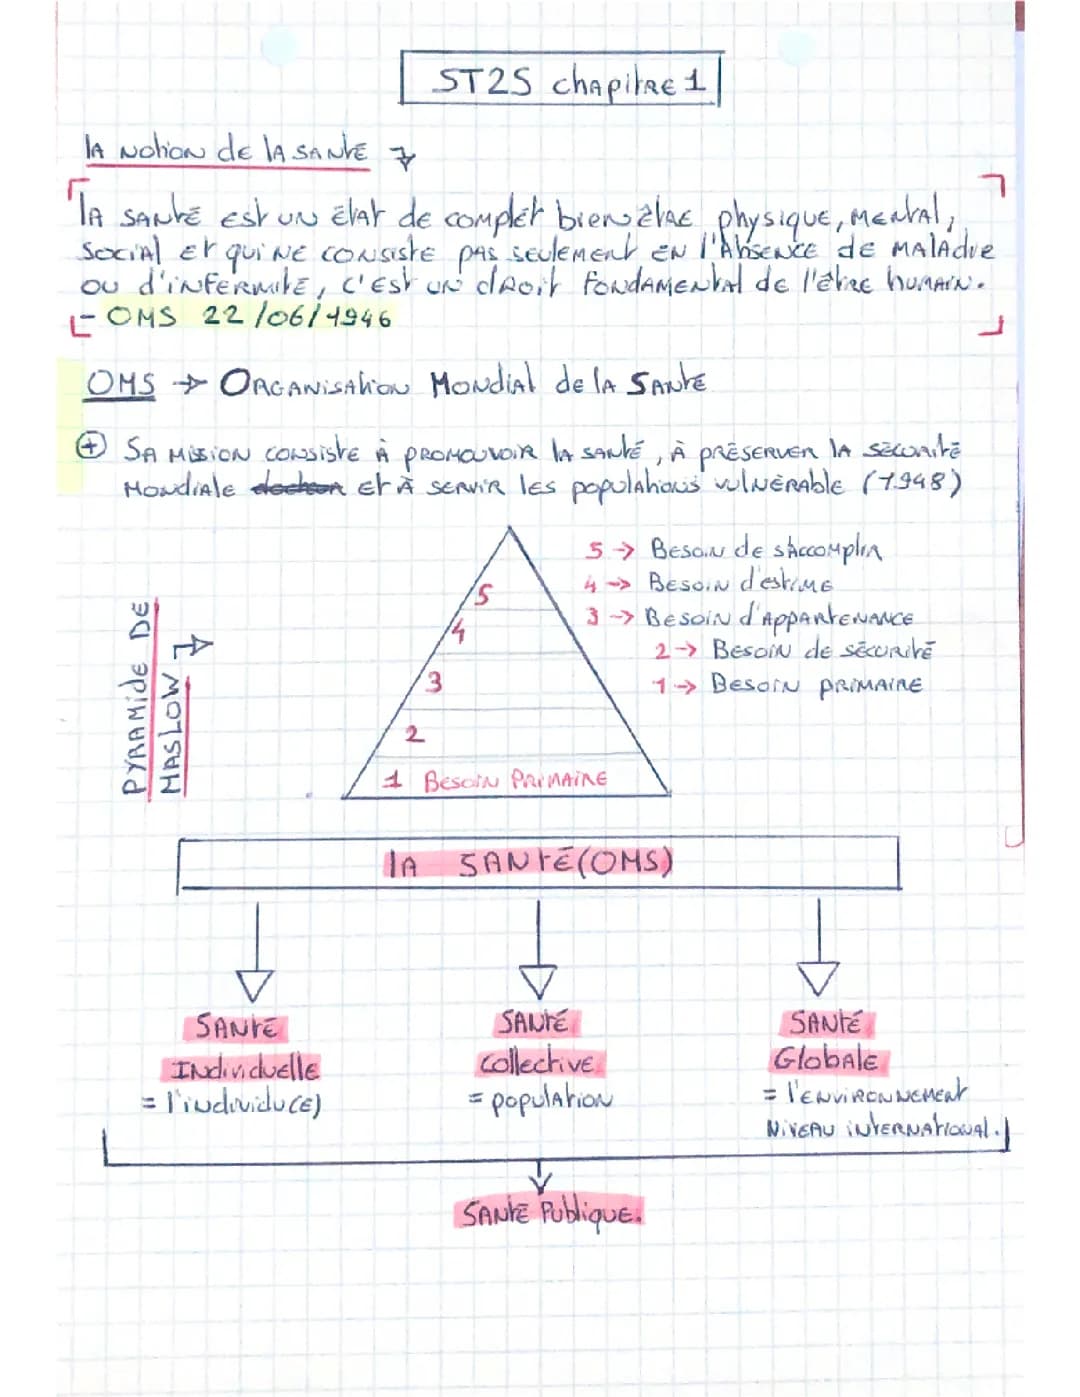 ST2S chapitre 1
la notion de la santé
la santé est un état de complet bien être physique, mental,
social et qui ne consiste pas seulement en l'absence de maladie
ou d'infermité, c'est un droit fondamental de l'être humain.
- OMS 22/06/1946
OMS → Organisation Mondial de la Santé
+ Sa mission consiste à promouvoir la santé, à préserver la sécurité
Mondiale et à servir les populations vulnérable (1948)
5 → Besoin de s'accomplir
4 → Besoin d'estime
3 → Besoin d'appartenance
2 → Besoin de sécurité
1 → Besoin primaire
Pyramide de
Maslow
5
4
3
2
1 Besoin Primaire
la santé (OMS)
Santé
Individuelle
= l'individu(e)
Santé
Collective
= population
Santé
Globale
= l'environnement
niveau international.
Santé Publique.